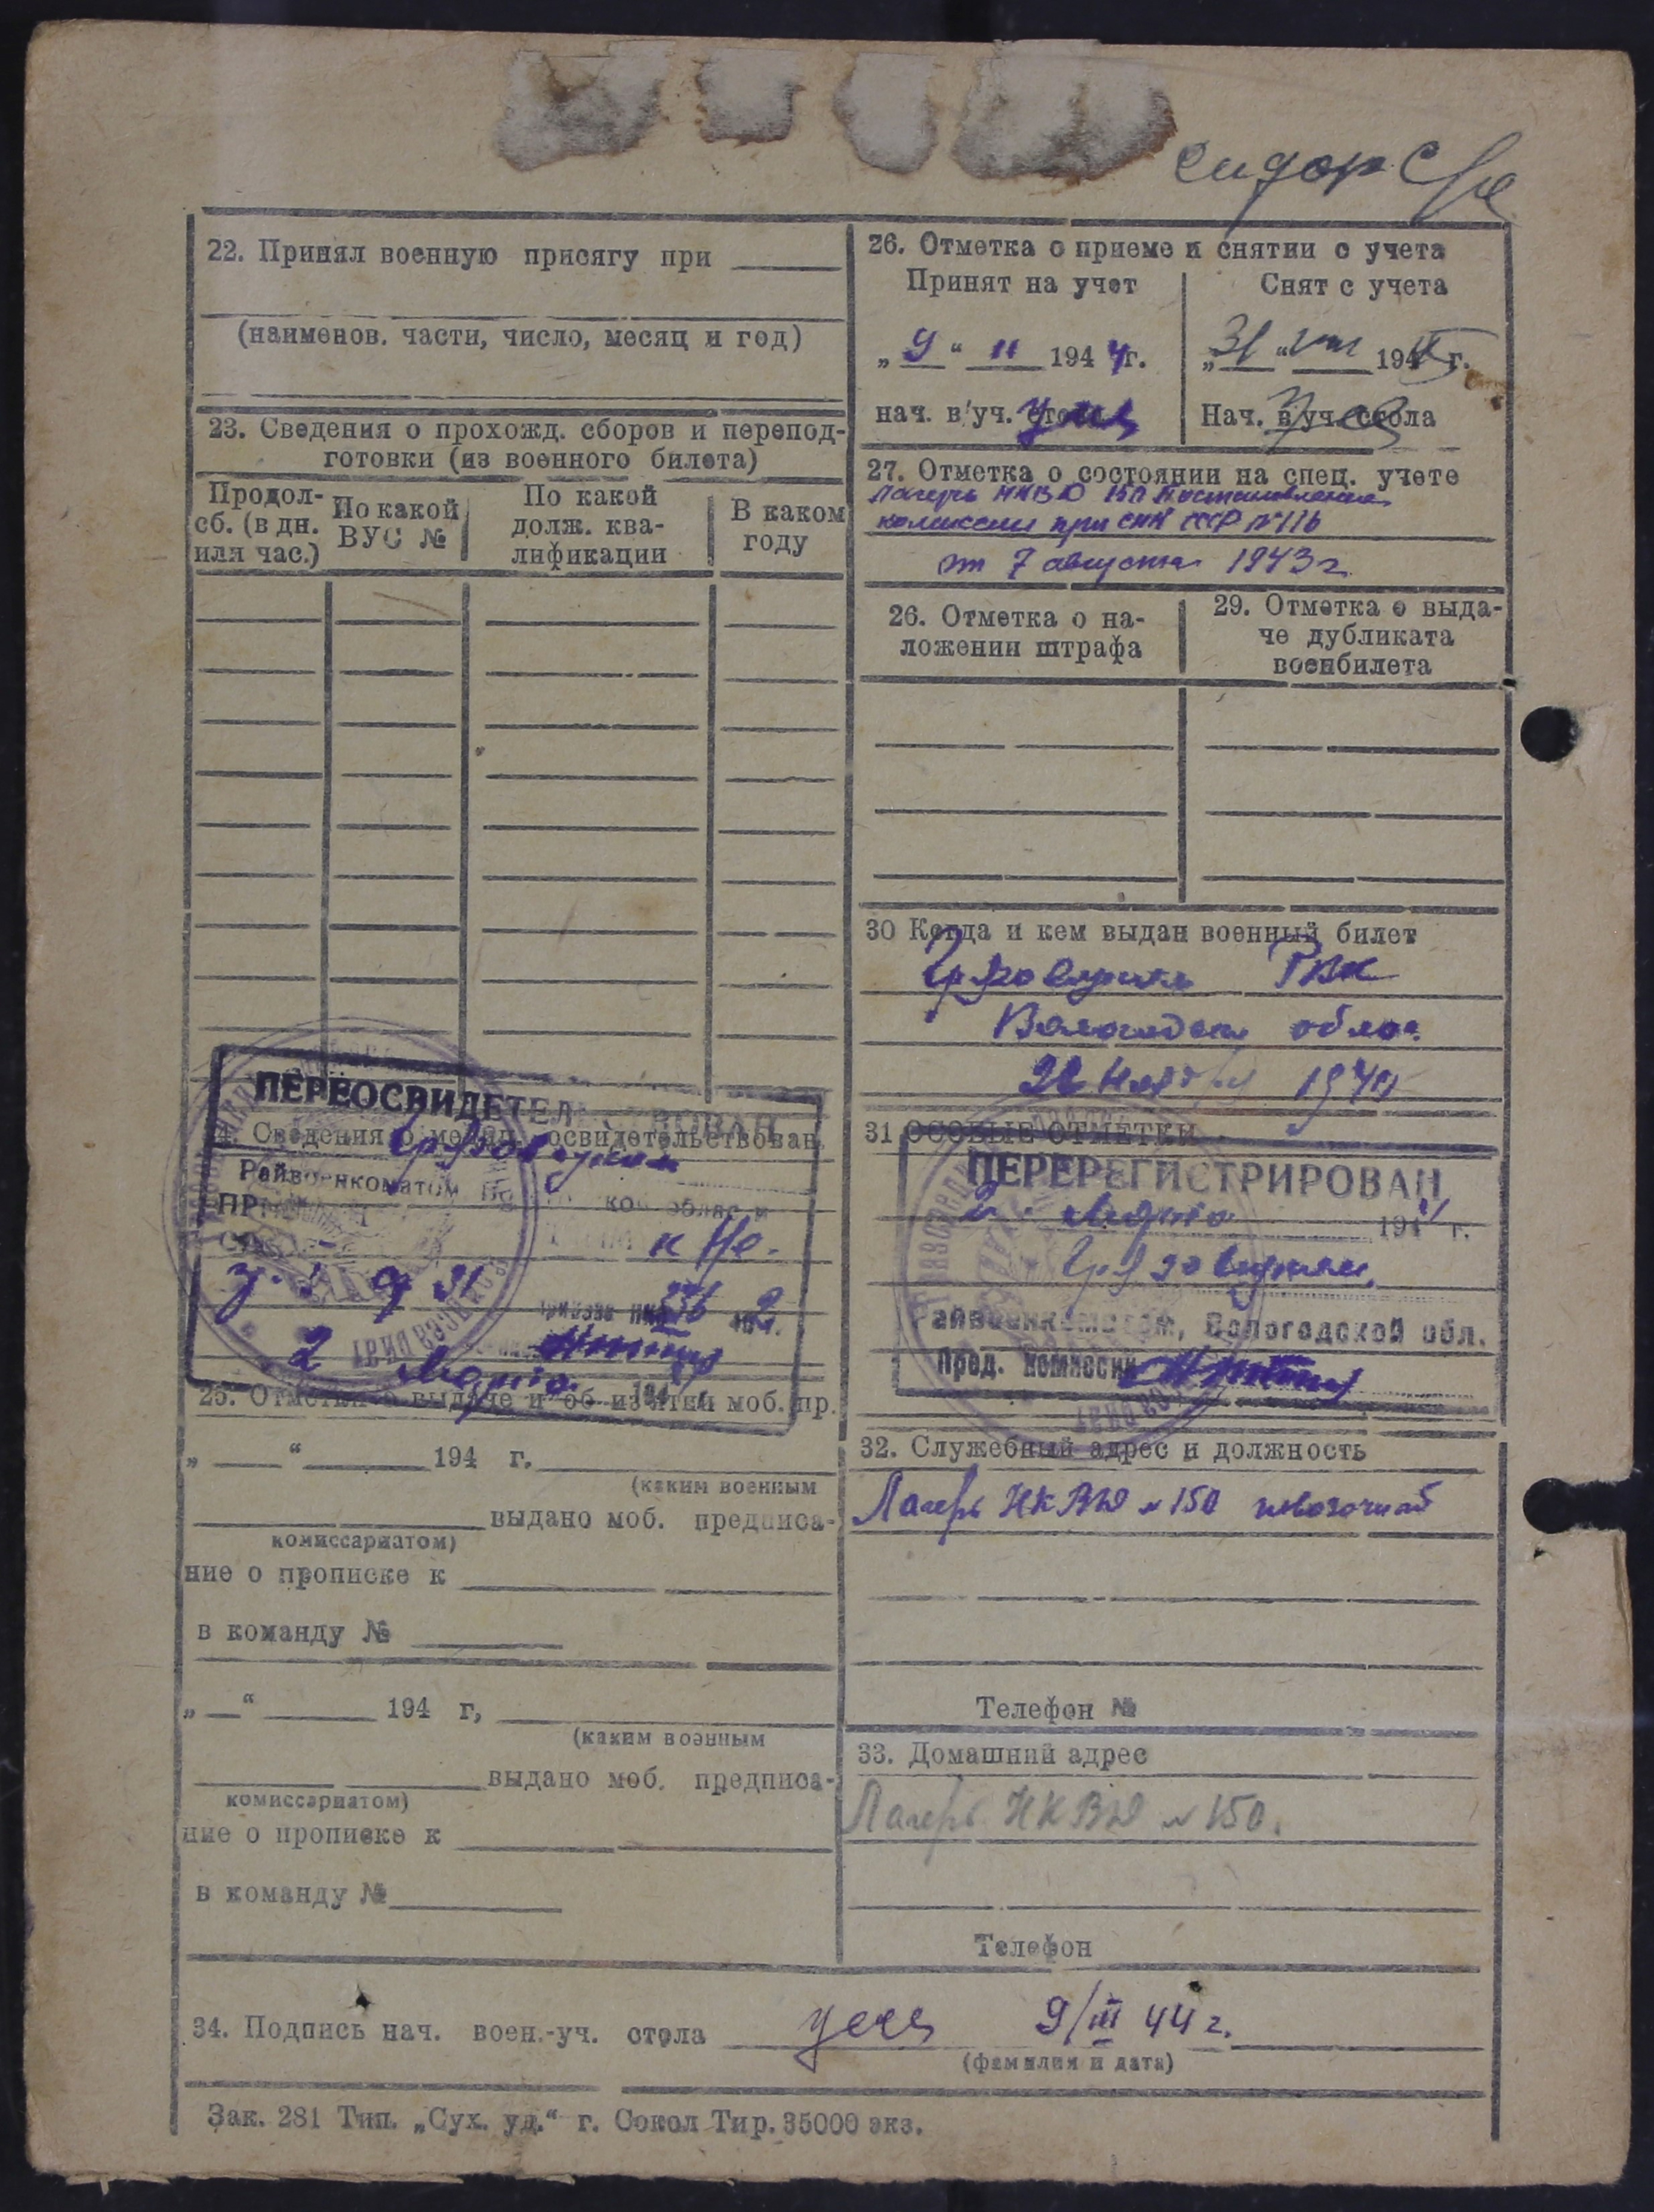 22. Принял военную присягу при
(наименов. части, число, месяц и год)
23. Сведения о прохожд. сборов и перепод-
готовки (из военного билета)
Продол-
сб. (в дн.
или час.)
По какой
ВУС №
По какой
долж. ква-
лификации
В каком
году
ПЕРЕОСВИДЕТЕЛЬСТВОВАН
24. Сведения о медиц. освидетельствован.
Грязовецким
Райвоенкоматом
к
2 Марта 194
25. Отметки о выдаче и об из'ятии моб. пр.
„ “ 194 г.
(каким военным
выдано моб. предписа-
комиссариатом)
ние о прописке к
в команду №
„ “ 194 г,
(каким военным
выдано моб. предписа-
комиссариатом)
ние о прописке к
в команду №
26. Отметка о приеме и снятии с учета
Принят на учет
Снят с учета
„ 9 “ II 1944г.
„ 31 “ VIII 194 г.
нач. в'уч. стола
Нач. в'уч. стола
27. Отметка о состоянии на спец. учете
лагерь НКВД 150 Постановление
комиссии при СНК СССР №116
от 7 августа 1943 г
26. Отметка о на-
ложении штрафа
29. Отметка о выда-
че дубликата
военбилета
30 Когда и кем выдан военный билет
Грязовецким РВК
Вологодской облас.
31 ОСОБЫЕ ОТМЕТКИ
ПЕРЕРЕГИСТРИРОВАН
2. Марта 1944 г.
Грязовецким
Райвоенкоматом, Вологодской обл.
Пред. комиссии
32. Служебный адрес и должность
Лагерь НКВД №150
Телефон №
33. Домашний адрес
Лагерь НКВД №150.
Телефон
34. Подпись нач. воен.-уч. стола 9/III 44 г.
(фамилия и дата)
Зак. 281 Тип. „Сух. уд.“ г. Сокол Тир. 35000 экз.